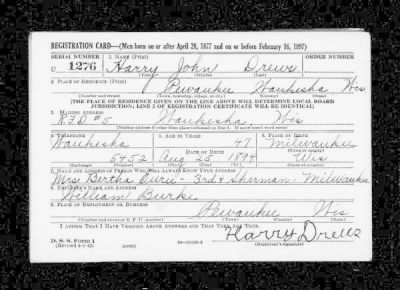 REGISTRATION CARD—(Men born on or after April 28, 1877 and on or before February 16, 1897)
SERIAL NUMBER 1. NAME (Print) ORDER NUMBER
U 1276 Harry John Drews
(First) (Middle) (Last)
2. PLACE OF RESIDENCE (Print)
Pewaukee Waukesha Wis
(Number and street) (Town, township, village, or city) (County) (State)
[THE PLACE OF RESIDENCE GIVEN ON THE LINE ABOVE WILL DETERMINE LOCAL BOARD
JURISDICTION; LINE 2 OF REGISTRATION CERTIFICATE WILL BE IDENTICAL]
3. MAILING ADDRESS
R.F.D #5 Waukesha Wis
[Mailing address if other than place indicated on line 2. If same insert word same]
4. TELEPHONE 5. AGE IN YEARS 6. PLACE OF BIRTH
Waukesha 47 Milwaukee
DATE OF BIRTH (Town or county)
5452 Aug 25 1894 Wis
(Exchange) (Number) (Mo.) (Day) (Yr.) (State or country)
7. NAME AND ADDRESS OF PERSON WHO WILL ALWAYS KNOW YOUR ADDRESS
Mrs Bertha - 3rd & Sherman - Milwaukee
8. EMPLOYER'S NAME AND ADDRESS
William Burke
9. PLACE OF EMPLOYMENT OR BUSINESS
Pewaukee Wis
(Number and street or R. F. D. number) (Town) (County) (State)
I AFFIRM THAT I HAVE VERIFIED ABOVE ANSWERS AND THAT THEY ARE TRUE.
Harry Drews
D. S. S. Form 1
(Revised 4-1-42) (Registrant's signature)